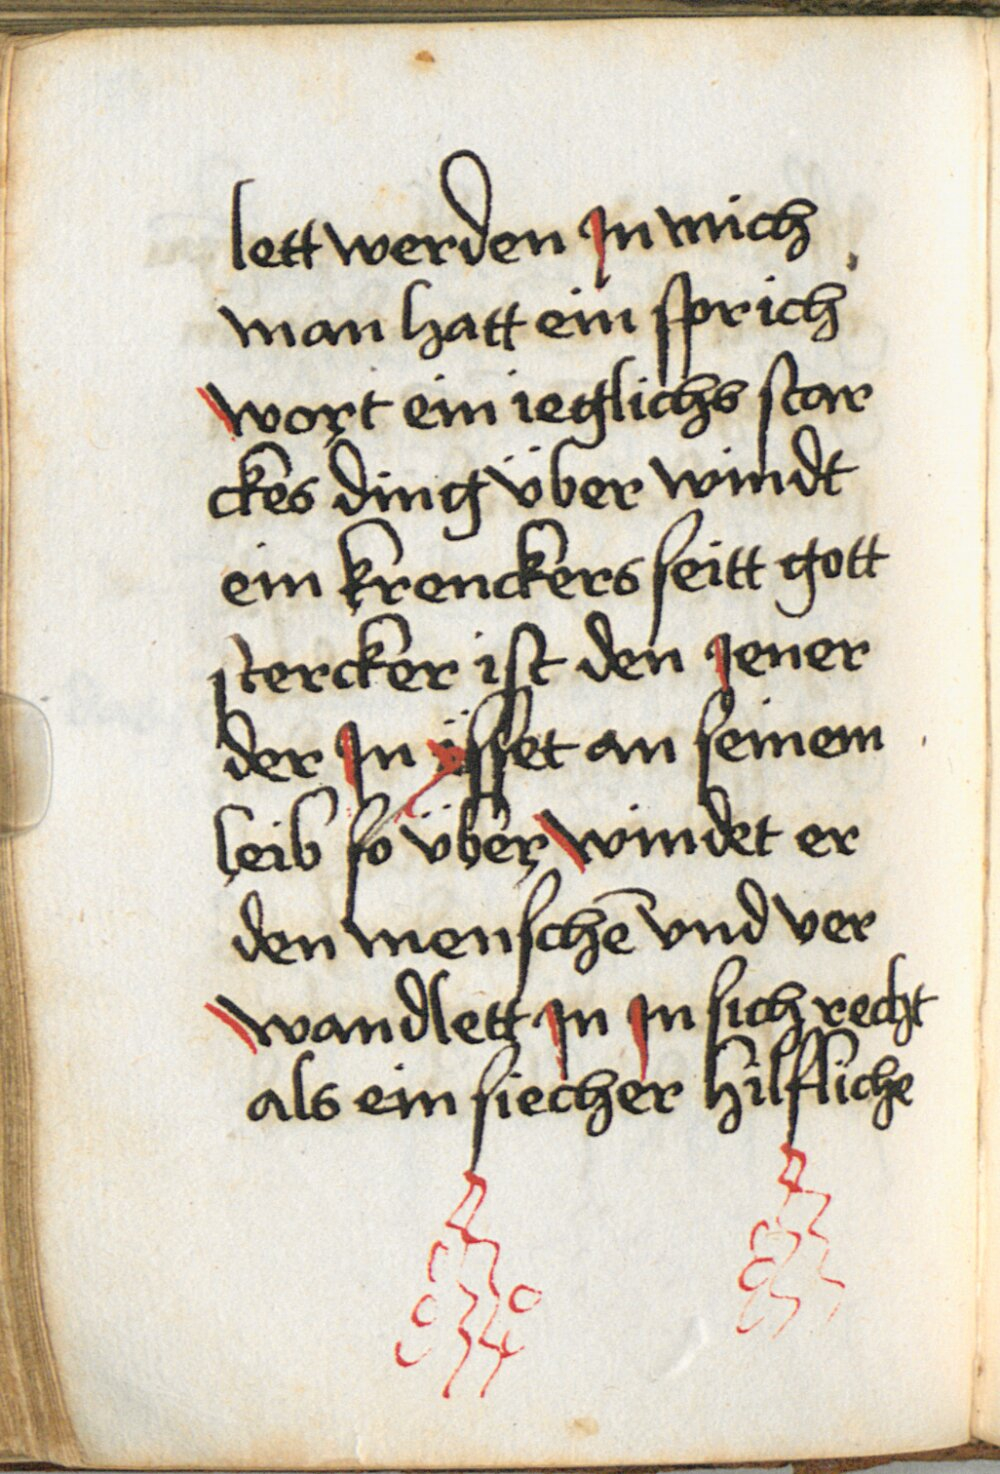 lett werden Jn mich
man hatt ein sprich
wort ein ieglichs star
ckes ding über windt
ein krenckers seitt gott
stercker ist den Jener
der Jn isset an seinem
leib so über windet er
den menschē vnd ver
wandlett Jn Jn sich recht
als ein siecher hilfliche